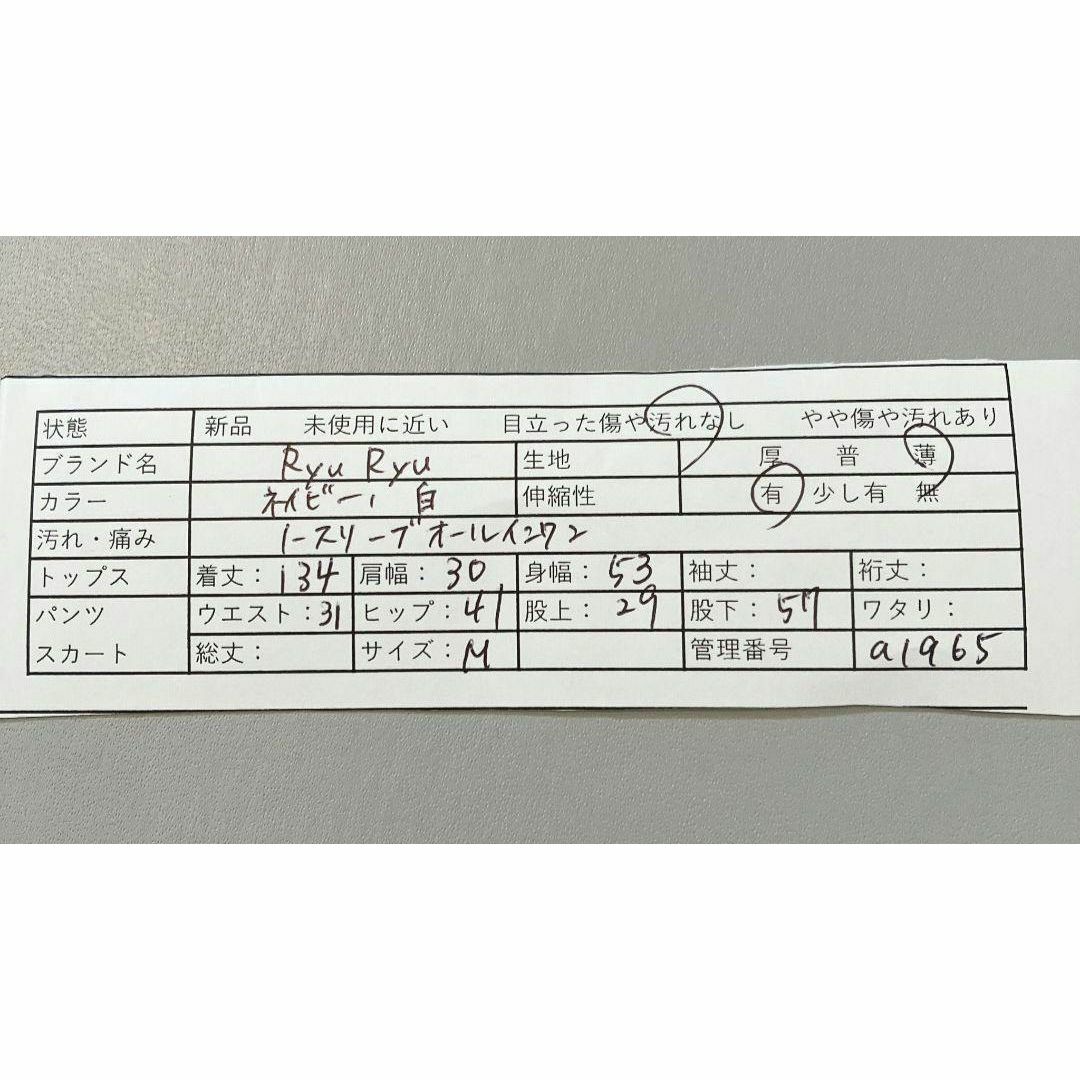 状態 新品 未使用に近い 目立った傷や汚れなし やや傷や汚れあり
ブランド名 Ryu Ryu 生地 厚 普 薄
カラー ネイビー、白 伸縮性 有 少し有 無
汚れ・痛み ノースリーブオールインワン
トップス 着丈：134 肩幅：30 身幅：53 袖丈： 裄丈：
パンツ ウエスト：31 ヒップ：41 股上：29 股下：57 ワタリ：
スカート 総丈： サイズ：M 管理番号 a1965